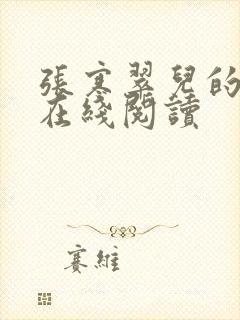 張寒翠兒的
在綫閱讀
賽維